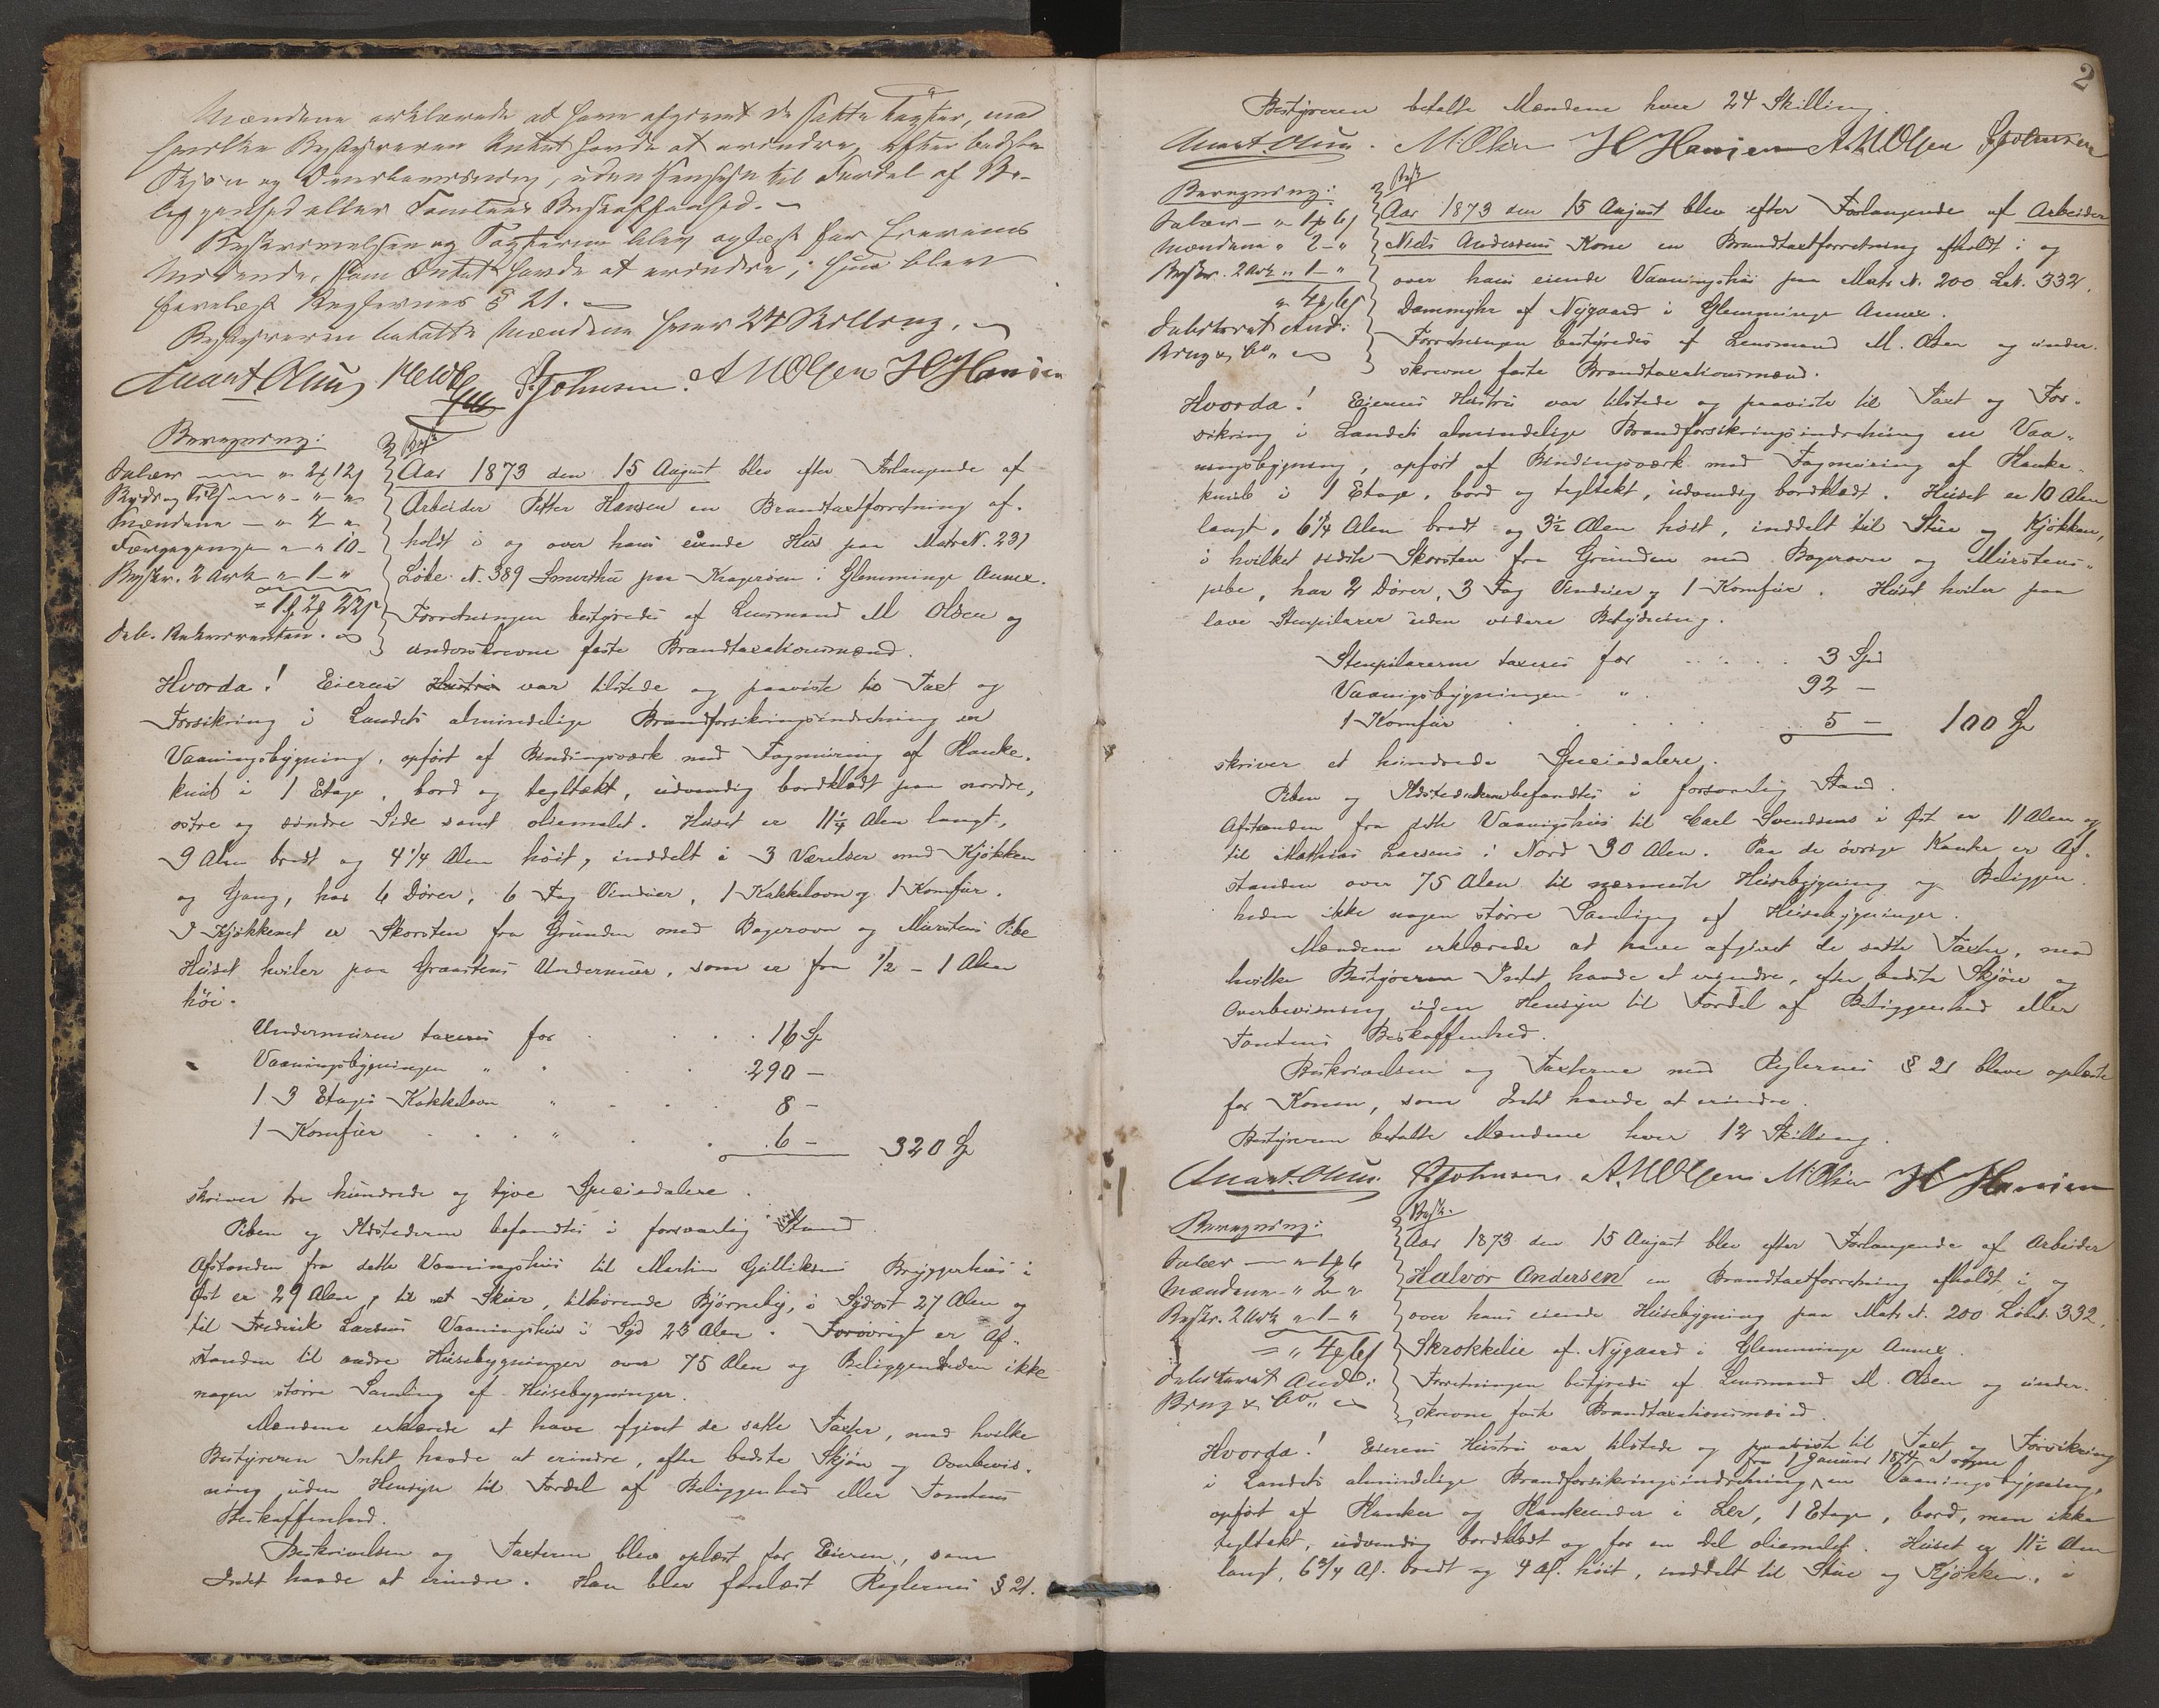 Mændene erklærede at have afgivet de satte Taxter, mod
hvilke Bestyreren Intet havde at erindre, efter bedste
Skjøn og Overbeviisning, uden Hensyn til Fordel af Be-
liggenhed eller Tomtens Beskaffenhed.
Beskrivelsen og Taxterne blev oplæst for Eierens
som Intet havde at erindre; hun blev
forelæst Reglernes § 21.
Bestyreren betalte Mændene hver 24 Skilling.
A M Olsen H Hansen
Beregning:
Salær 2 12
Mændene 4
10
Beskr. 2 Ark 1
Aar 1873 den 15 August blev efter Forlangende af
Arbeider Petter Hansen en Brandtaxtforretning af-
holdt i og over hans eiende Hus paa Matr N. 231
Løbe N. 389 Smerthu paa Kragerøen i Glemminge Annex.
Forretningen bestyredes af Lensmand M Olsen og
underskrevne faste Brandtaxationsmænd.
Hvorda! Eieren var tilstede og paaviste til Taxt og
Forsikring i Landets almindelige Brandforsikringsindretning en
Vaaningsbygning, opført af Bindingsværk med Fagmuring af Planke-
knub i 1 Etage, bord og tegltækt, udvendig bordklædt paa nordre,
østre og søndre Side samt oliemalet. Huset er 11 1/4 Alen langt,
9 Alen bredt og 4 1/4 Alen høit, inddelt i 3 Værelser med Kjøkken
og Gang, har 6 Dører, 6 Fag Vinduer, 1 Kakkelovn og 1 Komfur.
I Kjøkkenet er Skorsten fra Grunden med Bagerovn og Murstens Pibe
Huset hviler paa Graastens Undermur, som er fra 1/2 - 1 Alen
høi.
Undermuren taxeres for . . . 16 Sp
Vaaningsbygningen " . . 290 -
1 3 Etages Kakkelovn " . . . 8 -
1 Komfur . . . " . . 6 - 320 Sp
skriver tre hundrede og tyve Speciedalere.
Piben og Ildstederne befandtes i forsvarlig Stand.
Afstanden fra dette Vaaningshus til Martin Gulliksens Bryggerhus i
Øst er 29 Alen, til et Skur, tilhørende Bjørneby, i Sydost 27 Alen og
til Fredrik Larsens Vaaningshus i Syd 23 Alen. Forøvrigt er Af-
standen til andre Husebygninger over 75 Alen og Beliggenheden ikke
nogen større Samling af Husebygninger.
Mændene erklærede at have afgivet de satte Taxter, mod hvilke
Bestyreren Intet havde at erindre, efter bedste Skjøn og Overbevis-
ning uden Hensyn til Fordel af Beliggenhed eller Tomtens
Beskaffenhed.
Beskrivelsen og Taxterne blev oplæst for Eieren, som
Intet havde at erindre. Han blev forelæst Reglernes § 21.
2
Bestyreren betalte Mændene hver 24 Skilling.
M. Olsen H Hansen A. M. Olsen
Beregning:
Salær
Mændene " 2 - "
Beskr. 2 Ark " 1 - "
Aar 1873 den 15 August blev efter Forlangende af Arbeider
Niels Andersens Kone en Brandtaxtforretning afholdt i og
over hans eiende Vaaningshus paa Matr N. 200 Løb. 332,
Dammyhr af Nygaard i Glemminge Annex.
Forretningen bestyredes af Lensmand M. Olsen og under-
skrevne faste Brandtaxationsmænd.
Hvorda! Eierens Hustru var tilstede og paaviste til Taxt og For-
sikring i Landets almindelige Brandforsikringsindretning en Vaa-
ningsbygning, opført af Bindingsværk med Fagmuring af Planke-
knub i 1 Etage, bord og tegltækt, udvendig bordklædt. Huset er 10 Alen
langt, 6 1/4 Alen bredt og 3 1/2 Alen høit, inddelt til Stue og Kjøkken,
i hvilket sidste Skorsten fra Grunden med Bagerovn og Murstens-
pibe, har 2 Dører, 3 Fag Vinduer og 1 Komfur. Huset hviler paa
lave Stenpilarer uden videre Betydning.
Stenpilarerne taxeres for . . . 3 Spd
Vaaningsbygningen " . 92 -
1 Komfur . . . . . 5 - 100 Sp
skriver et hundrede Speciedalere.
Piben og Ildstederne befandtes i forsvarlig Stand.
Afstanden fra dette Vaaningshus til Carl Svendsens i Øst er 11 Alen og
til Mathias Larsens i Nord 30 Alen. Paa de øvrige Kanter er Af-
standen over 75 Alen til nærmeste Husebygning og Beliggen-
heden ikke nogen større Samling af Husebygninger.
Mændene erklærede at have afgivet de satte Taxter, mod
hvilke Bestyreren Intet havde at erindre, efter bedste Skjøn og
Overbevisning uden Hensyn til Fordel af Beliggenhed eller
Tomtens Beskaffenhed.
Beskrivelsen og Taxterne med Reglernes § 21 bleve oplæste
for Konen, som Intet havde at erindre.
Bestyreren betalte Mændene hver 12 Skilling.
A. M. Olsen M. Olsen H Hansen
Beregning:
Salær
Mændene " 2 "
Beskr. 2 Ark " 1 - "
Aar 1873 den 15 August blev efter Forlangende af Arbeider
Halvor Andersen en Brandtaxtforretning afholdt i og
over hans eiende Husebygning paa Matr N. 200 Løb N. 332,
Skrokkelie af Nygaard i Glemminge Annex.
Forretningen bestyredes af Lensmand M. Olsen og under-
skrevne faste Brandtaxationsmænd.
Hvorda! Eierens Hustru var tilstede og paaviste til Taxt og Forsikring
fra 1 Januar 1874 at regne
i Landets almindelige Brandforsikringsindretning en Vaaningsbygning,
opført af Planker og Plankeender i Ler, 1 Etage, bord, men ikke
tegltækt, udvendig bordklædt og for en Del oliemalet. Huset er 11 1/2 Alen
langt, 6 3/4 Al. bredt og 4 Al. høit, inddelt til Stue og Kjøkken, i